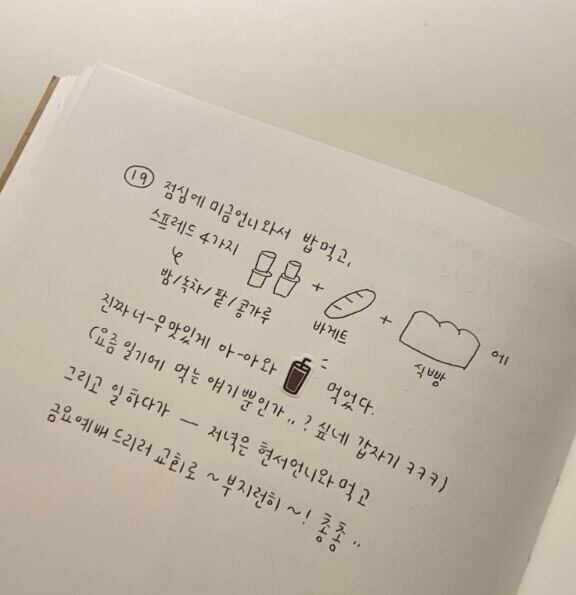 19 점심에 미금언니와서 밥먹고,
스프레드 4가지 + + 에
밤/녹차/팥/콩가루 바게트 식빵
진짜 너-무 맛있게 아-아와 먹었다.
(요즘 일기에 먹는 얘기 뿐인가..? 싶네 갑자기 ㅋㅋㅋ)
그리고 일하다가 — 저녁은 현서언니와 먹고
금요예배 드리러 교회로 ~ 부지런히 ~! 총총..